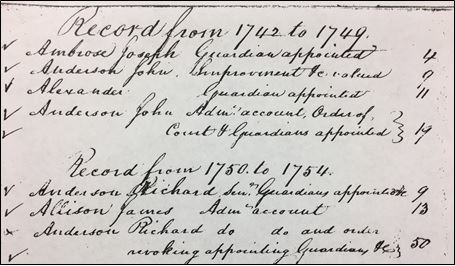 Record from 1742 to 1749.
✓ Ambrose Joseph Guardian appointed 4
✓ Anderson John, Improvment &c. valued 9
✓ Alexander Guardian appointed 11
✓ Anderson John Admrs account, Order of
✓ Court & Guardians appointed } 19
Record from 1750. to 1754.
✓ Anderson Richard, Senr. Guardians appointed &c 9
✓ Allison James Admrs account 13
x Anderson Richard do do and order
revoking appointing Guardians &c } 50